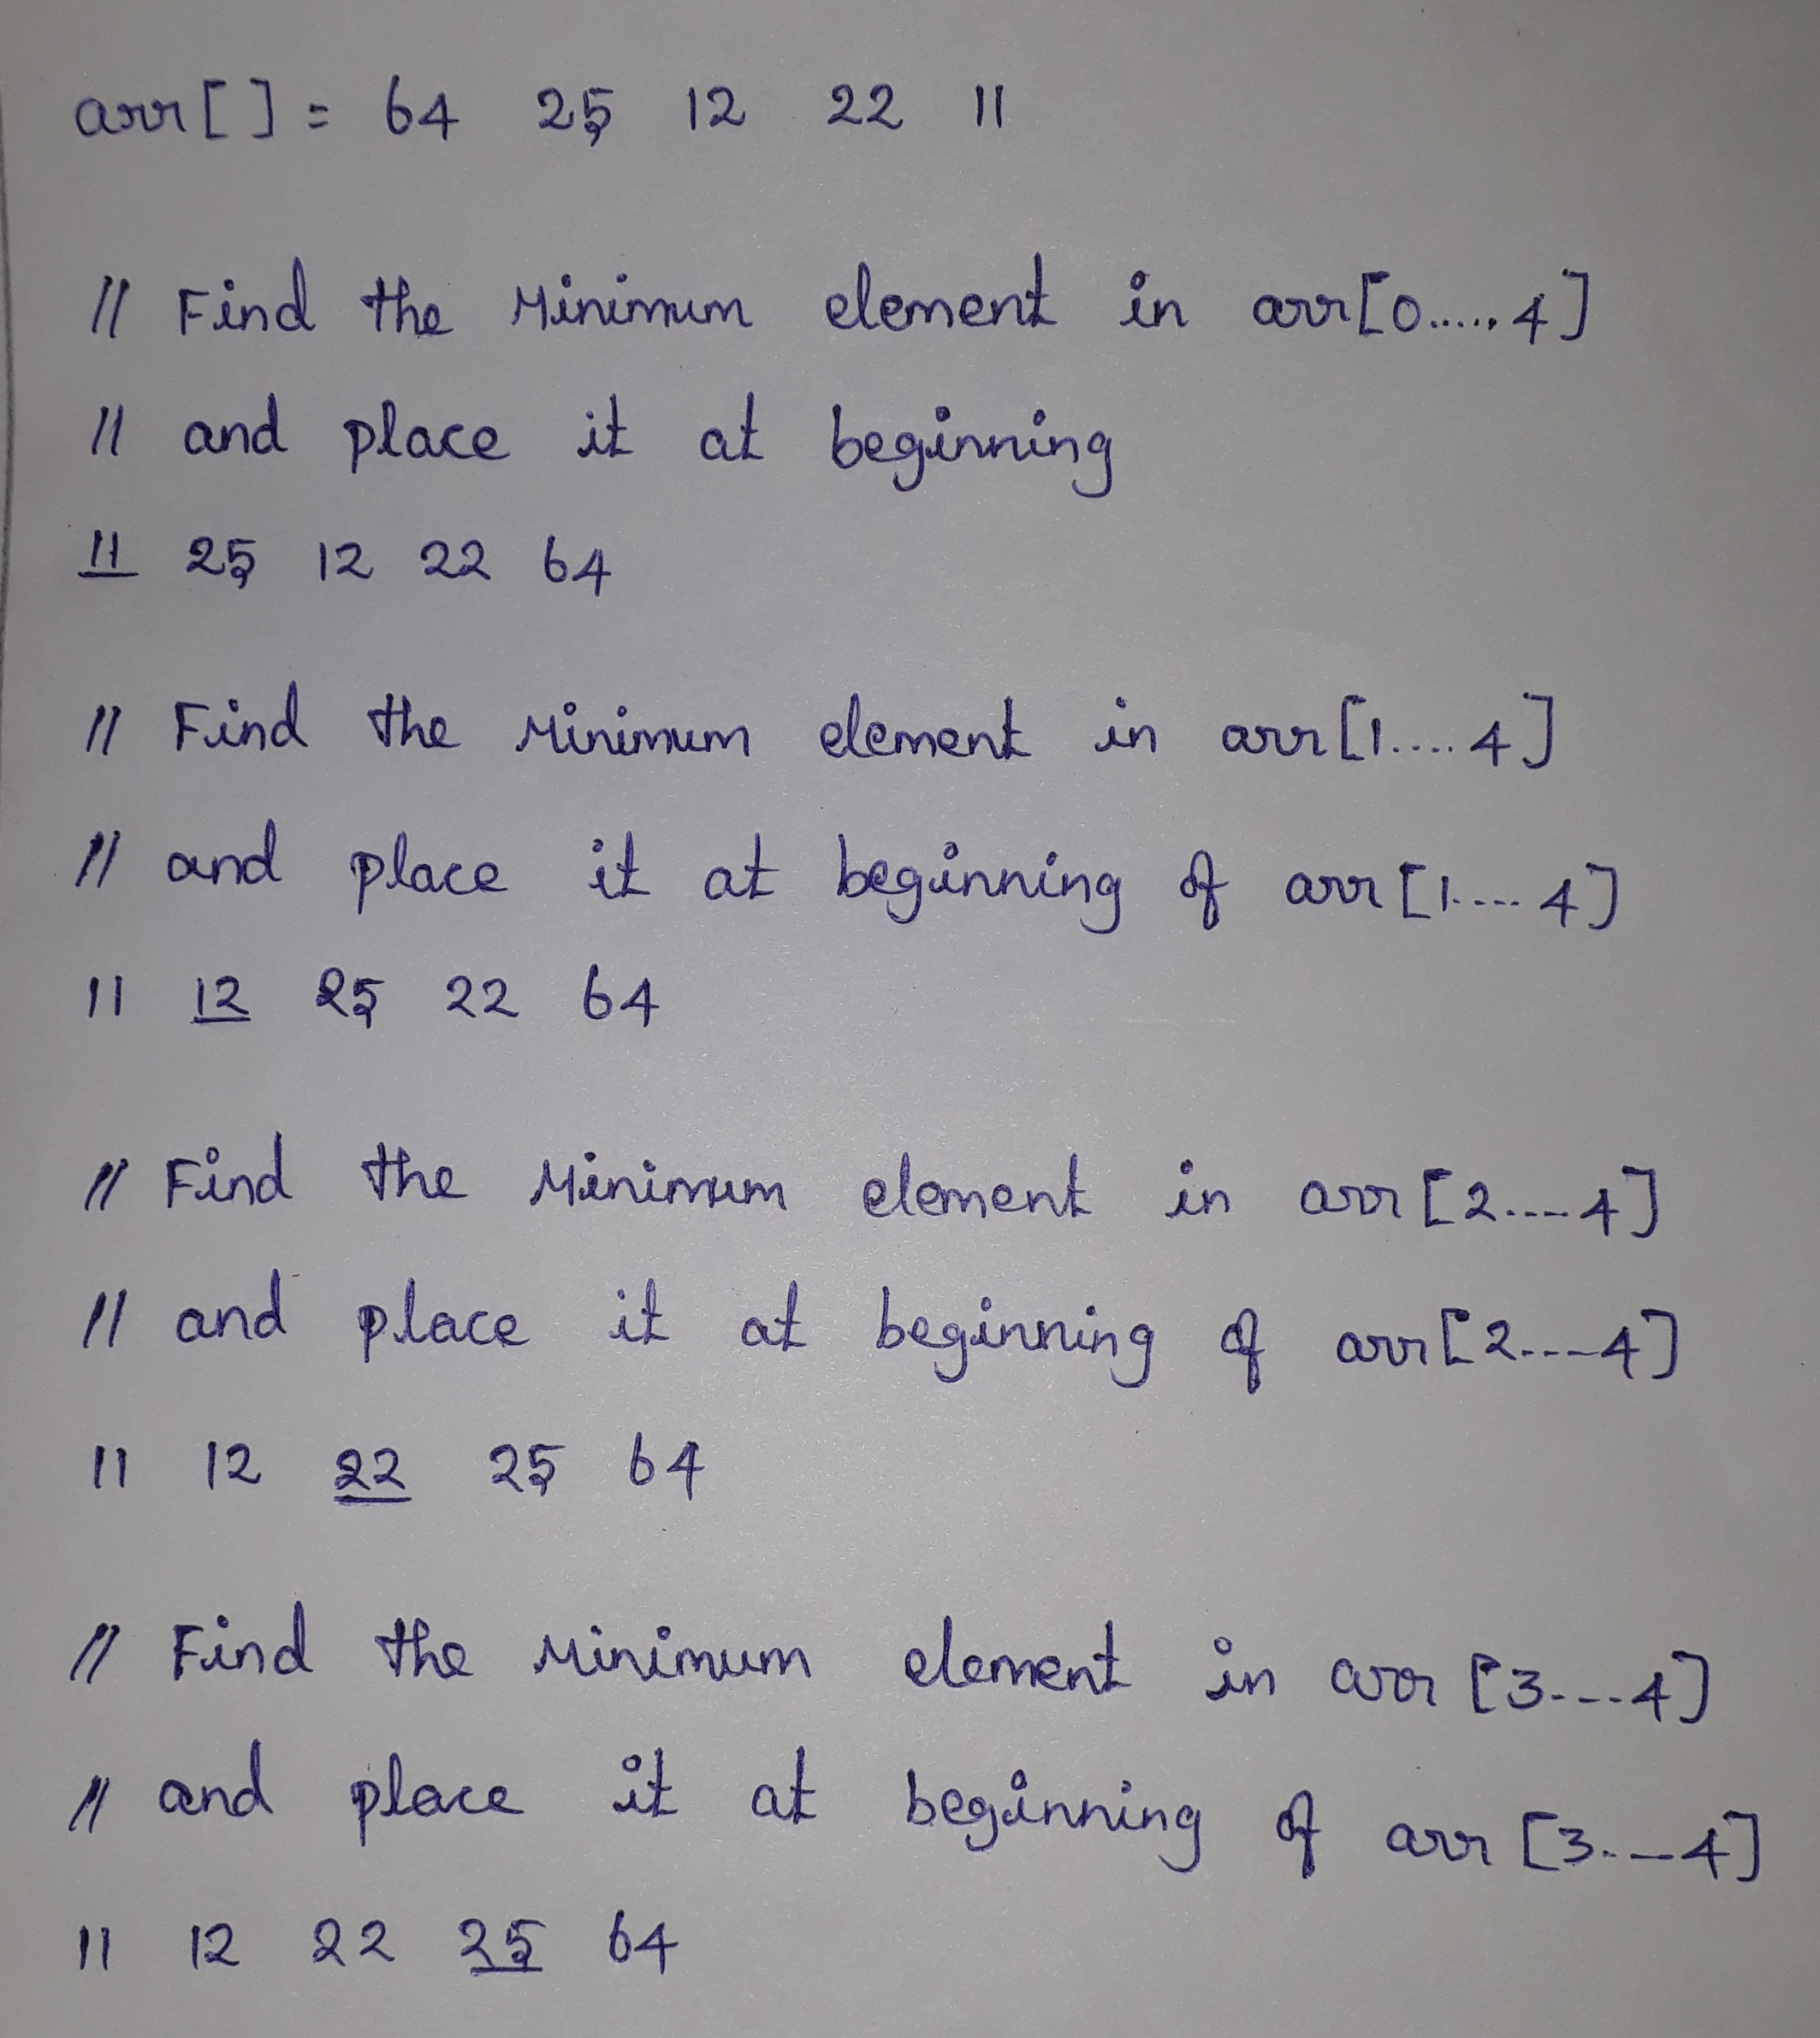 arr[ ] = 64 25 12 22 11
// Find the Minimum element in arr[0.....4]
// and place it at beginning
11 25 12 22 64
// Find the Minimum element in arr[1....4]
// and place it at beginning of arr[1....4]
11 12 25 22 64
// Find the Minimum element in arr[2....4]
// and place it at beginning of arr[2....4]
11 12 22 25 64
// Find the Minimum element in arr [3...4]
// and place it at beginning of arr [3...4]
11 12 22 25 64